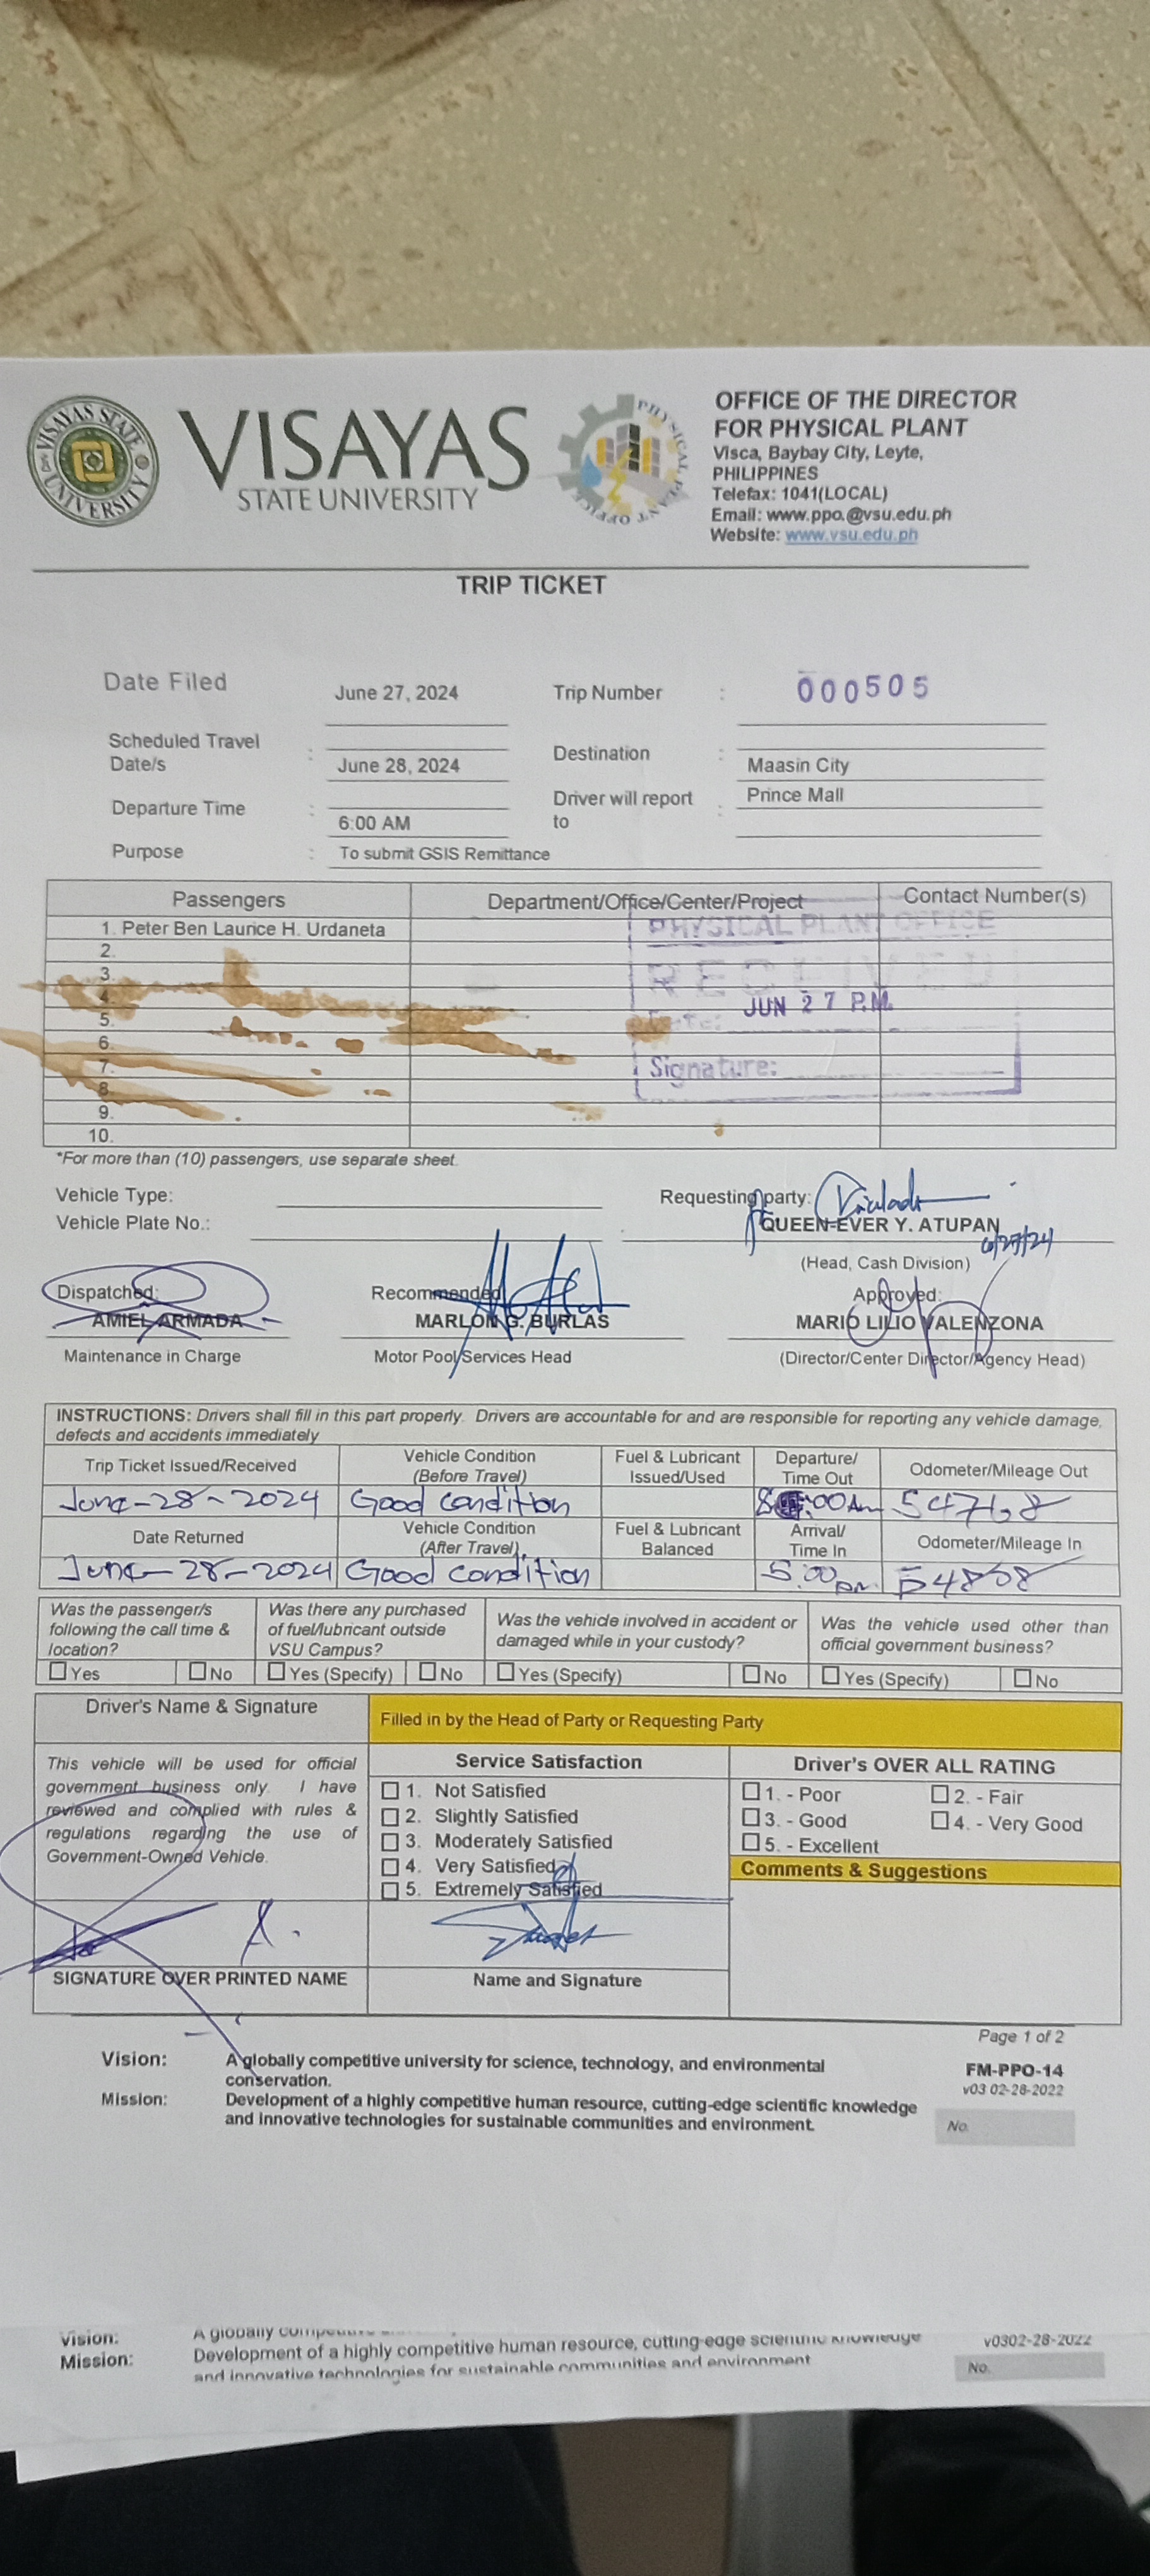 VISAYAS STATE UNIVERSITY
VISAYAS
STATE UNIVERSITY
OFFICE OF THE DIRECTOR
FOR PHYSICAL PLANT
Visca, Baybay City, Leyte,
PHILIPPINES
Telefax: 1041(LOCAL)
Email: www.ppo.@vsu.edu.ph
Website: www.vsu.edu.ph
TRIP TICKET
Date Filed June 27, 2024 Trip Number : 000505
Scheduled Travel Date/s : June 28, 2024 Destination : Maasin City
Departure Time : 6:00 AM Driver will report to : Prince Mall
Purpose : To submit GSIS Remittance
Passengers Department/Office/Center/Project Contact Number(s)
1. Peter Ben Laurice H. Urdaneta
2.
3.
4.
5.
6.
7.
8.
9.
10.
PHYSICAL PLANT OFFICE
RECEIVED
Date: JUN 27 P.M.
Signature:
*For more than (10) passengers, use separate sheet.
Vehicle Type:
Vehicle Plate No.:
Requesting party:
QUEEN-EVER Y. ATUPAN
6/27/24
(Head, Cash Division)
Dispatched: Recommended Approved:
AMIEL ARMADA MARLON G. BURLAS MARIO LILIO VALENZONA
Maintenance in Charge Motor Pool/Services Head (Director/Center Director/Agency Head)
INSTRUCTIONS: Drivers shall fill in this part properly. Drivers are accountable for and are responsible for reporting any vehicle damage,
defects and accidents immediately
Trip Ticket Issued/Received Vehicle Condition (Before Travel) Fuel & Lubricant Issued/Used Departure/ Time Out Odometer/Mileage Out
June-28-2024 Good condition 8:00 Am
Date Returned Vehicle Condition (After Travel) Fuel & Lubricant Balanced Arrival/ Time In Odometer/Mileage In
June-28-2024 Good condition 5:00 pm
Was the passenger/s following the call time & location?
Yes No
Was there any purchased of fuel/lubricant outside VSU Campus?
Yes (Specify) No
Was the vehicle involved in accident or damaged while in your custody?
Yes (Specify) No
Was the vehicle used other than official government business?
Yes (Specify) No
Driver's Name & Signature
Filled in by the Head of Party or Requesting Party
This vehicle will be used for official
government business only. I have
reviewed and complied with rules &
regulations regarding the use of
Government-Owned Vehicle.
SIGNATURE OVER PRINTED NAME
Service Satisfaction
1. Not Satisfied
2. Slightly Satisfied
3. Moderately Satisfied
4. Very Satisfied
5. Extremely Satisfied
Name and Signature
Driver's OVER ALL RATING
1. - Poor 2. - Fair
3. - Good 4. - Very Good
5. - Excellent
Comments & Suggestions
Page 1 of 2
Vision: A globally competitive university for science, technology, and environmental
conservation.
Mission: Development of a highly competitive human resource, cutting-edge scientific knowledge
and innovative technologies for sustainable communities and environment.
FM-PPO-14
v03 02-28-2022
No.
Vision: A globally
Mission: Development of a highly competitive human resource, cutting-edge scientific knowledge
and innovative technologies for sustainable communities and environment
v0302-28-2022
No.